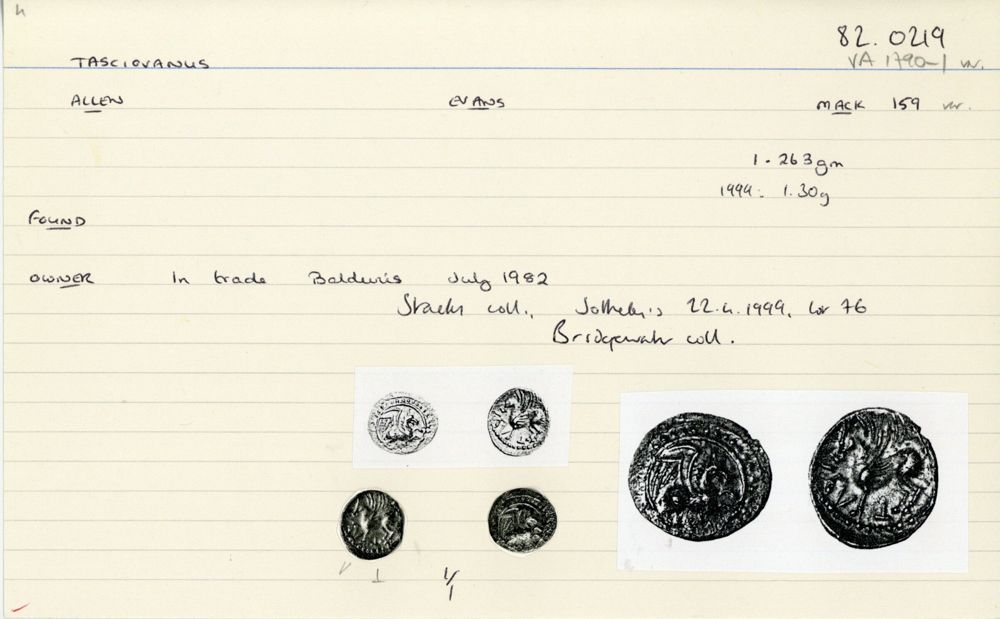 h
82.0219
TASCIOVANUS
VA 1790-1 var.
ALLEN EVANS MACK 159 var.
1.263gm
1999: 1.30g
FOUND
OWNER In trade Baldwin's July 1982
Stacks coll., Sotheby's 22.4.1999, lot 76
Bridgewater coll.
V I 1/1